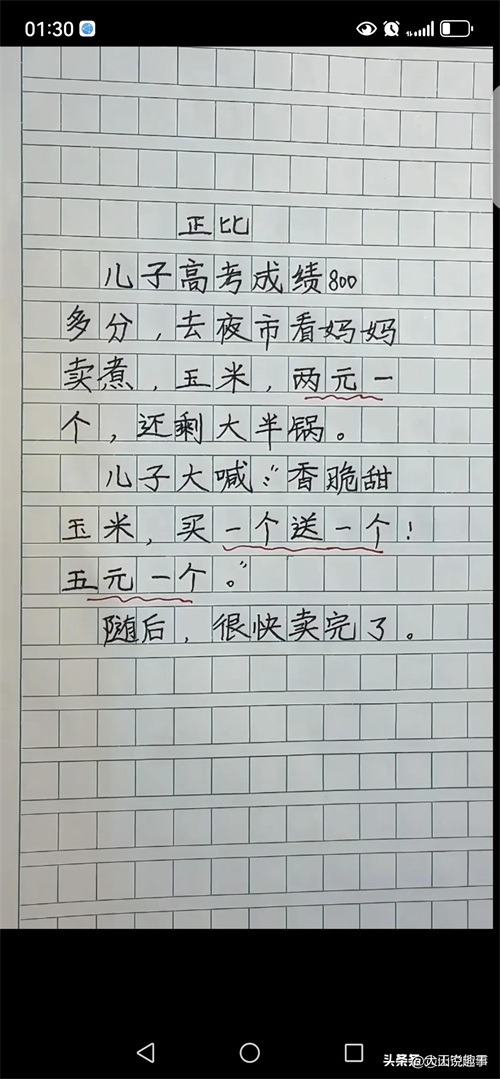 01:30
正比
儿子高考成绩800
多分，去夜市看妈妈
卖煮，玉米，两元一
个，还剩大半锅。
儿子大喊：“香脆甜
玉米，买一个送一个！
五元一个。”
随后，很快卖完了。
头条